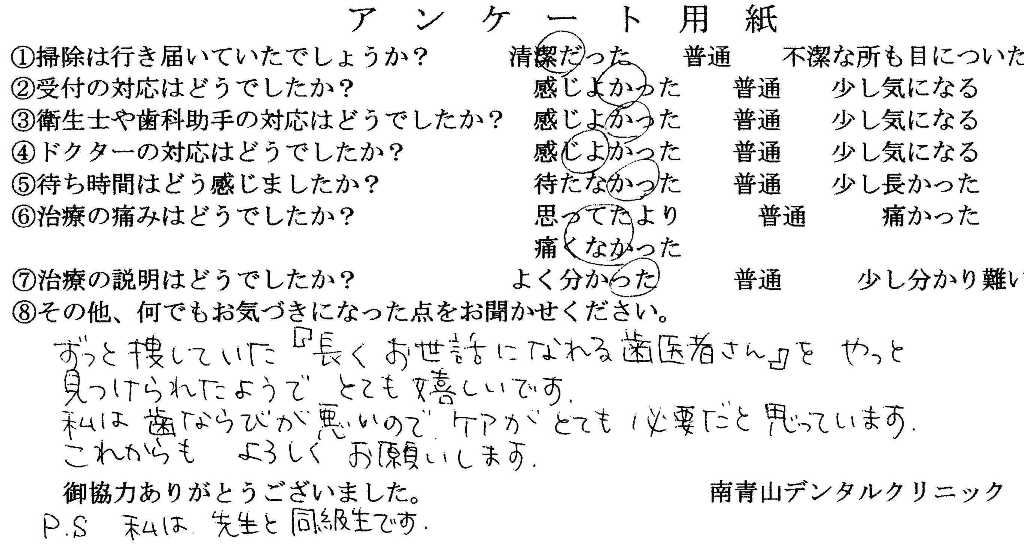 アンケート用紙
①掃除は行き届いていたでしょうか？ 清潔だった 普通 不潔な所も目についた
②受付の対応はどうでしたか？ 感じよかった 普通 少し気になる
③衛生士や歯科助手の対応はどうでしたか？ 感じよかった 普通 少し気になる
④ドクターの対応はどうでしたか？ 感じよかった 普通 少し気になる
⑤待ち時間はどう感じましたか？ 待たなかった 普通 少し長かった
⑥治療の痛みはどうでしたか？ 思ってたより 普通 痛かった
痛くなかった
⑦治療の説明はどうでしたか？ よく分かった 普通 少し分かり難い
⑧その他、何でもお気づきになった点をお聞かせください。
ずっと捜していた『長くお世話になれる歯医者さん』を やっと
見つけられたようで とても嬉しいです。
私は歯ならびが悪いので、ケアがとても必要だと思っています。
これからも よろしくお願いします。
御協力ありがとうございました。 南青山デンタルクリニック
P.S 私は 先生と同級生です。